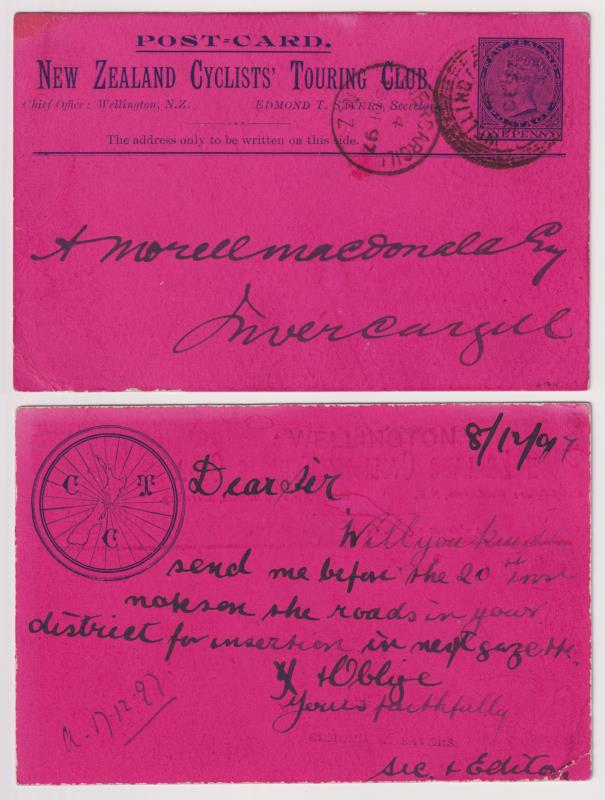 POST-CARD.
NEW ZEALAND CYCLISTS' TOURING CLUB.
Chief Office: Wellington, N.Z. EDMOND T. SAYERS, Secretary
The address only to be written on this side.
NEW ZEALAND
POSTAGE
ONE PENNY
WELLINGTON
INVERCARGILL
97
N Z
A Morell Macdonald Esq
Invercargill
C T C
8/12/97
Dear Sir
Will you kindly
send me before the 20th inst
notes on the roads in your
district for insertion in next gazette
& Oblige
Yours faithfully
EDMOND T. SAYERS
Sec. & Editor
a-17.12.97.